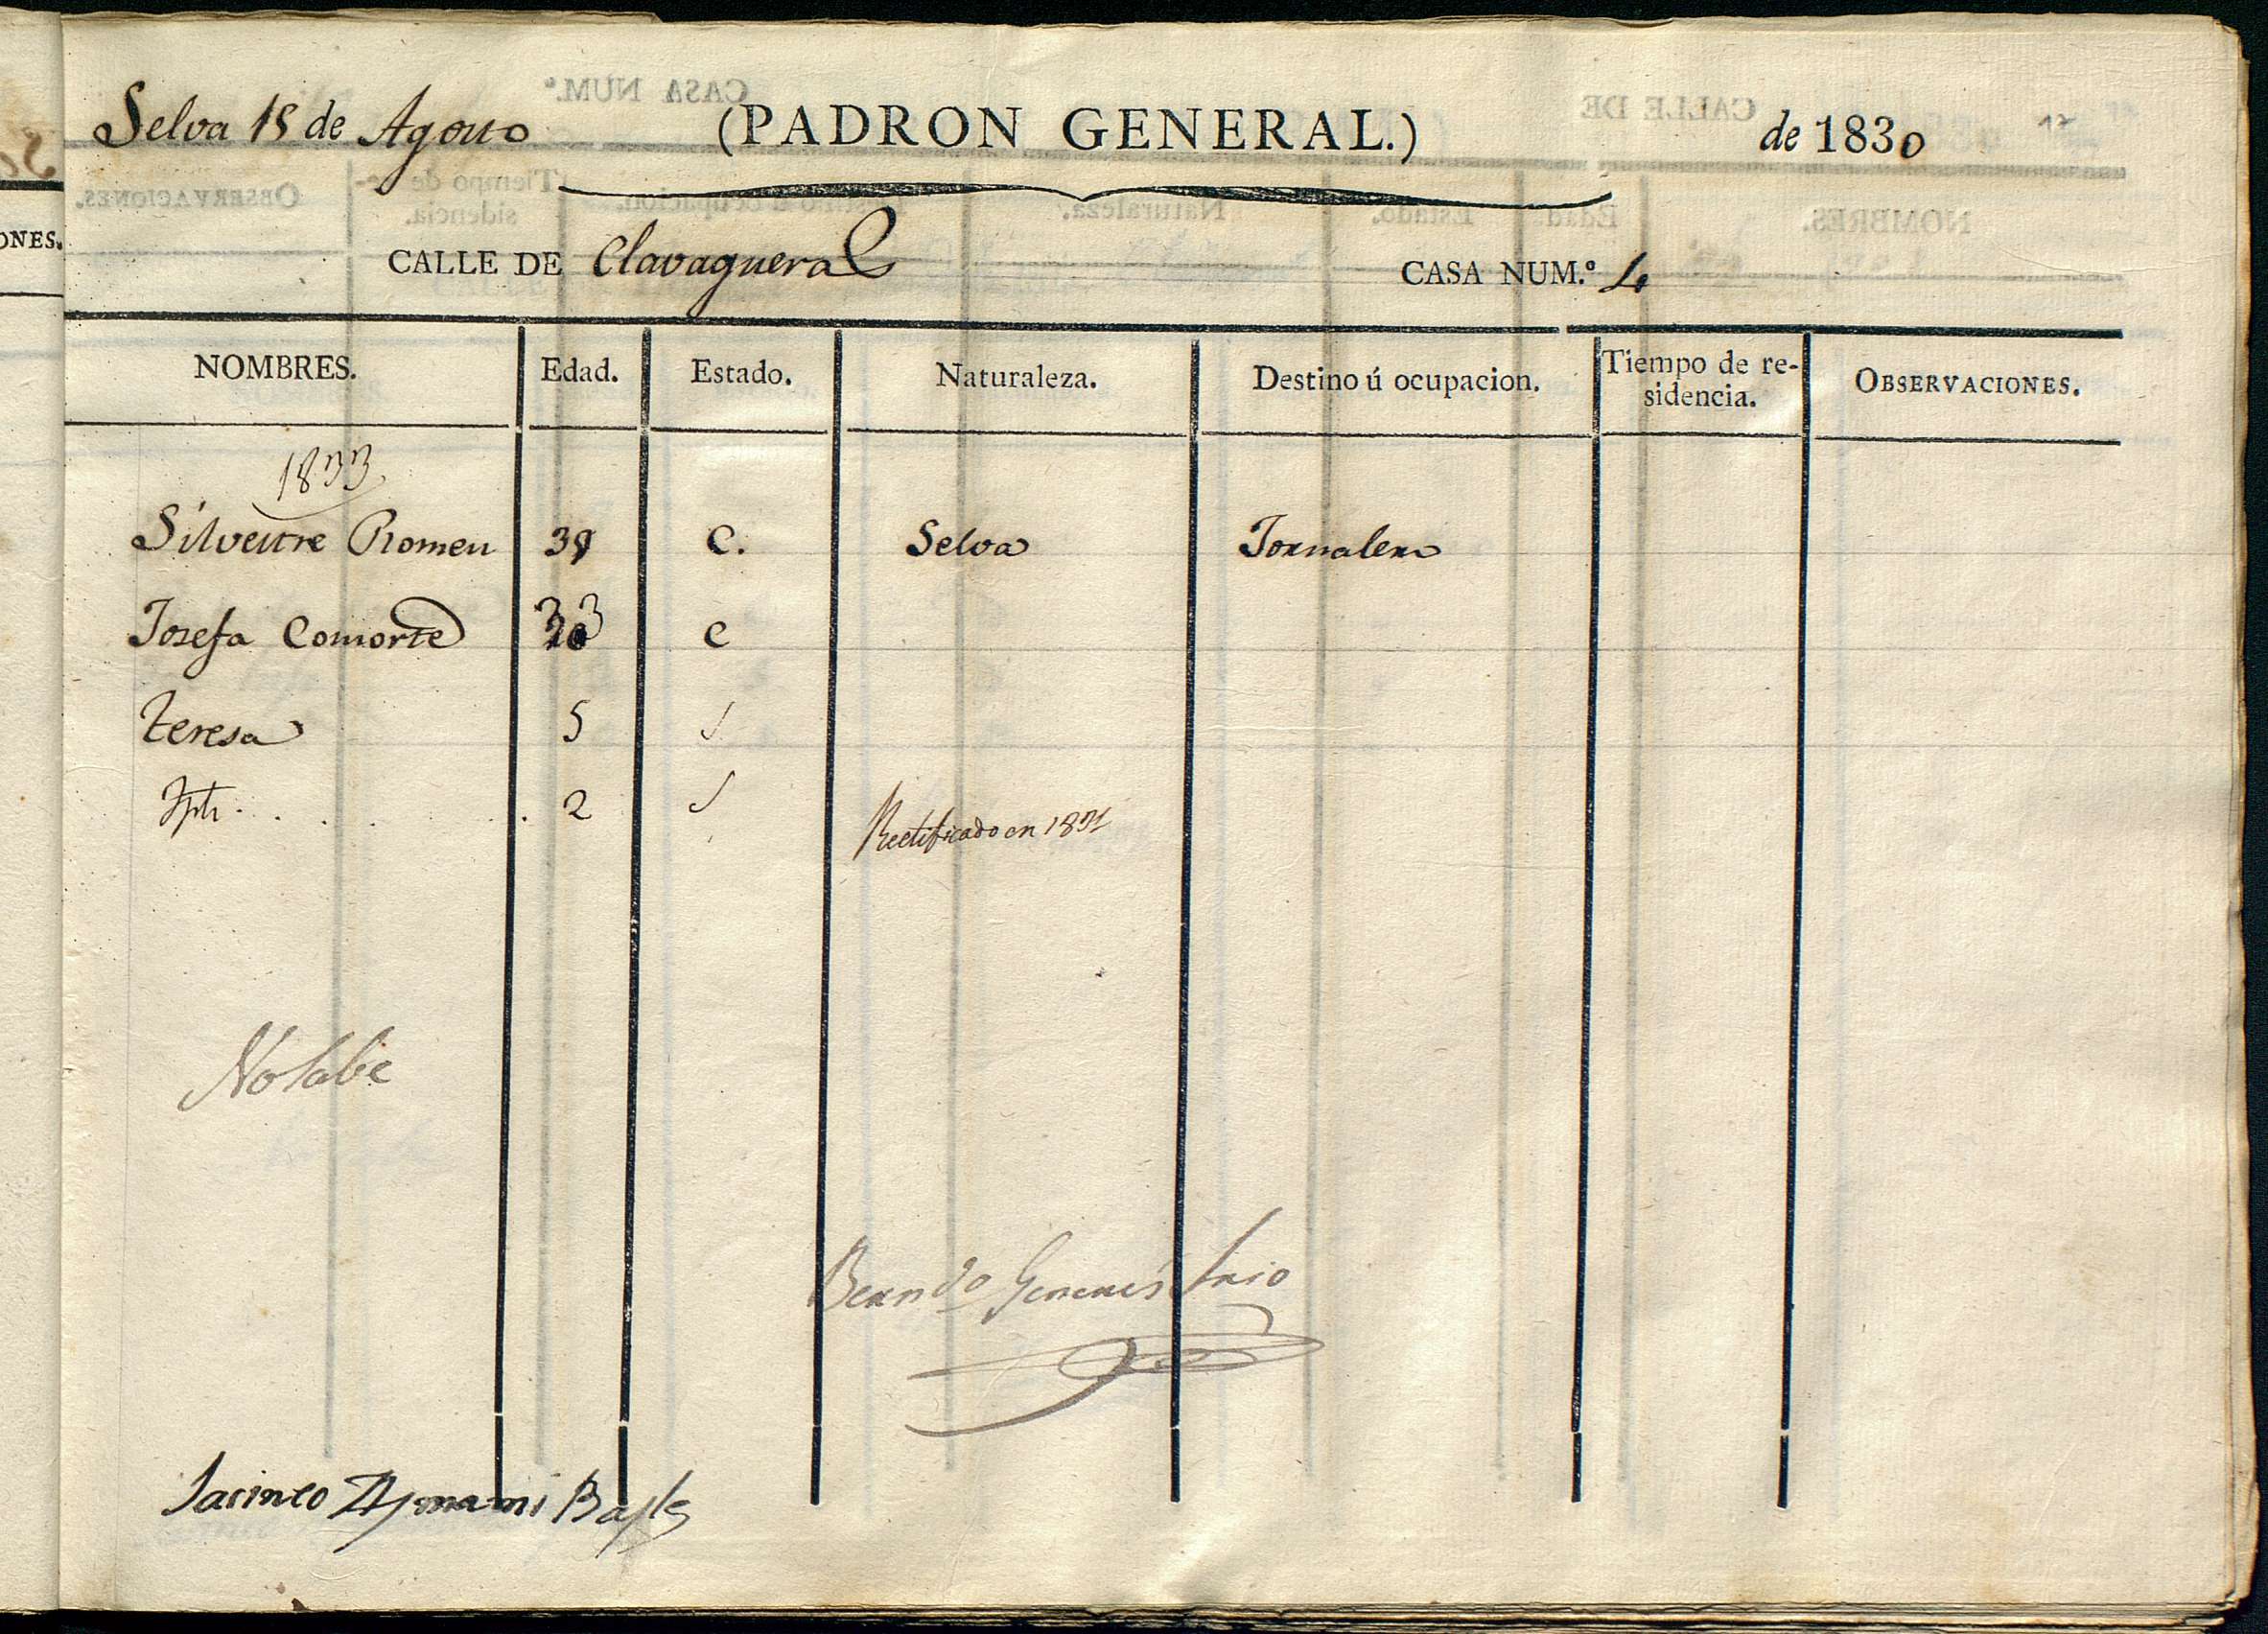 Selva 15 de Agosto (PADRON GENERAL.) de 1830
CALLE DE Clavaguera CASA NUM.º 4
NOMBRES. Edad. Estado. Naturaleza. Destino ú ocupacion. Tiempo de re-
sidencia. OBSERVACIONES.
1833
Silvestre Romeu 39 C. Selva Jornalero
Josefa Consorte 33 C
Teresa 5 S
Jph. . . . . . 2 S
Rectificado en 1831
No sabe
Jacinto Aymami Bayle